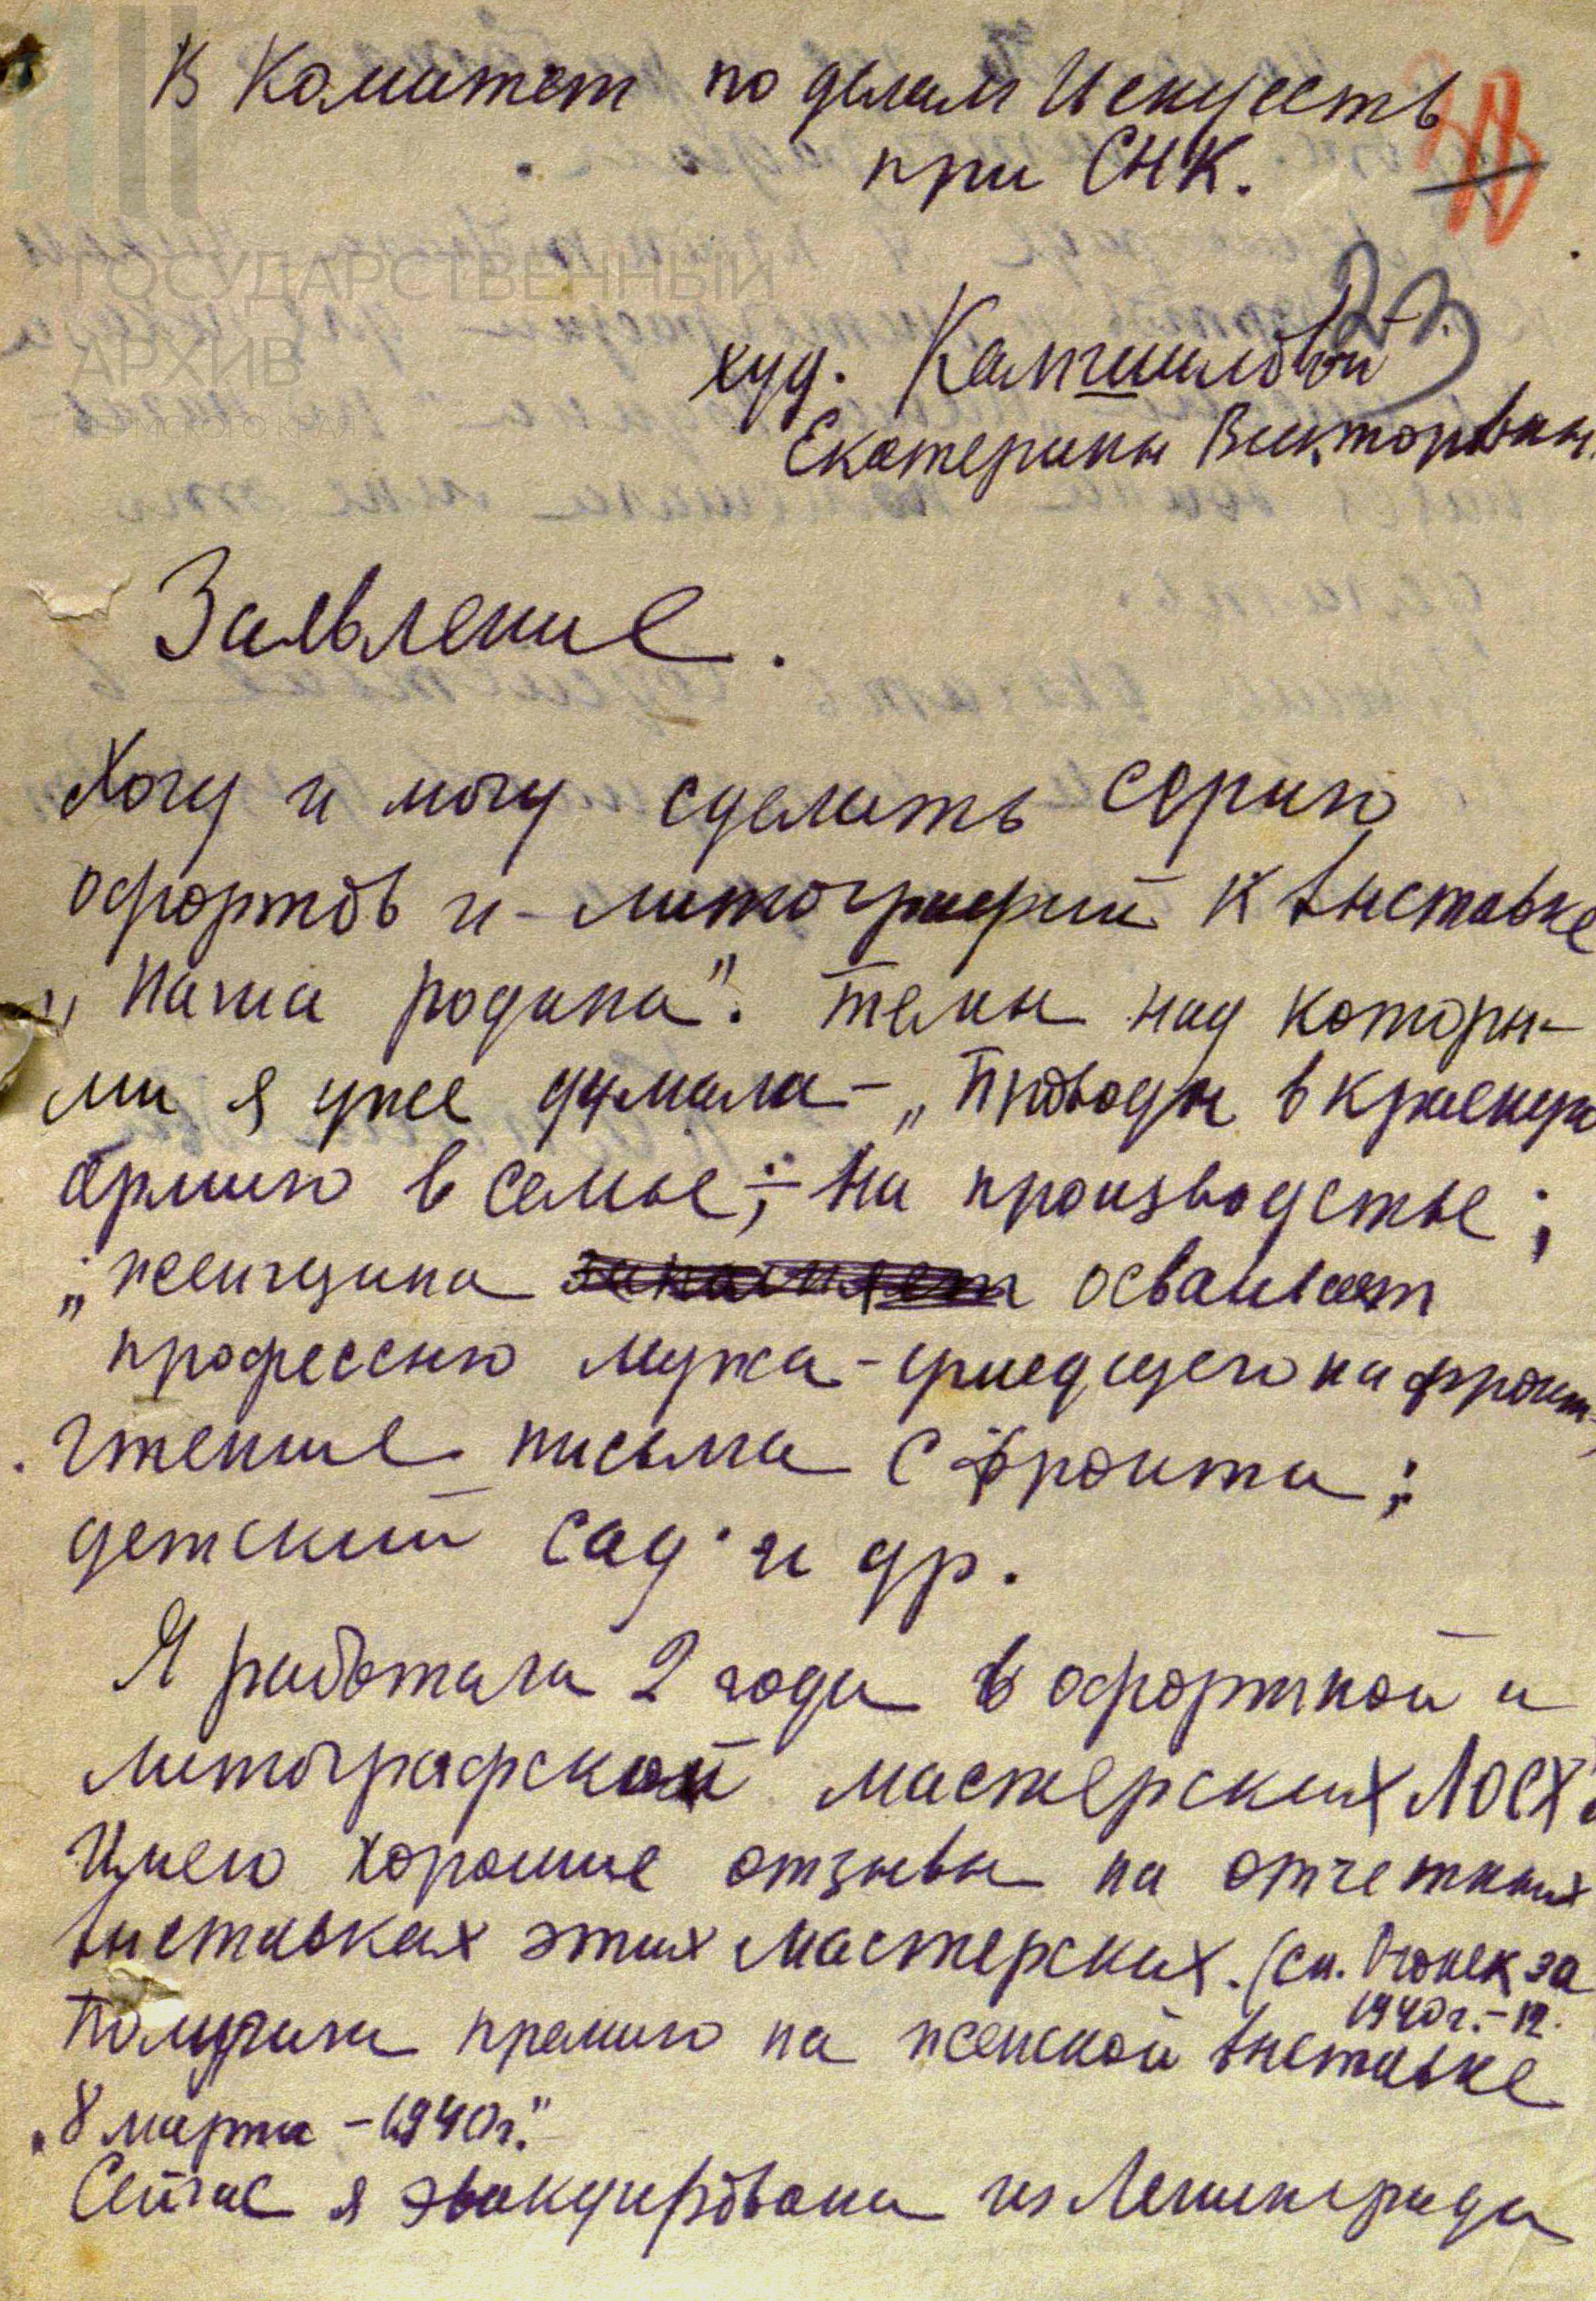 В Комитет по делам Искусств
при СНК.
23
ГОСУДАРСТВЕННЫЙ
АРХИВ
худ.
Екатерины Викторовны.
Заявление.
Хочу и могу сделать серию
офортов и литографий к выставке
„Наша родина". Темы над которы-
ми я уже думала – „Проводы в красную
армию в семье; – на производстве;
„женщина осваивает
профессию мужа – ушедшего на фронт
чтение письма с фронта;
детский сад и др.
Я работала 2 года в офортной и
литографской мастерских ЛОСХ
Имею хорошие отзывы на отчетных
выставках этих мастерских. (см. Огонек за
1940 г. – 12.
Получила премию на женской выставке
„8 марта – 1940 г."
Сейчас я эвакуирована из Ленинграда